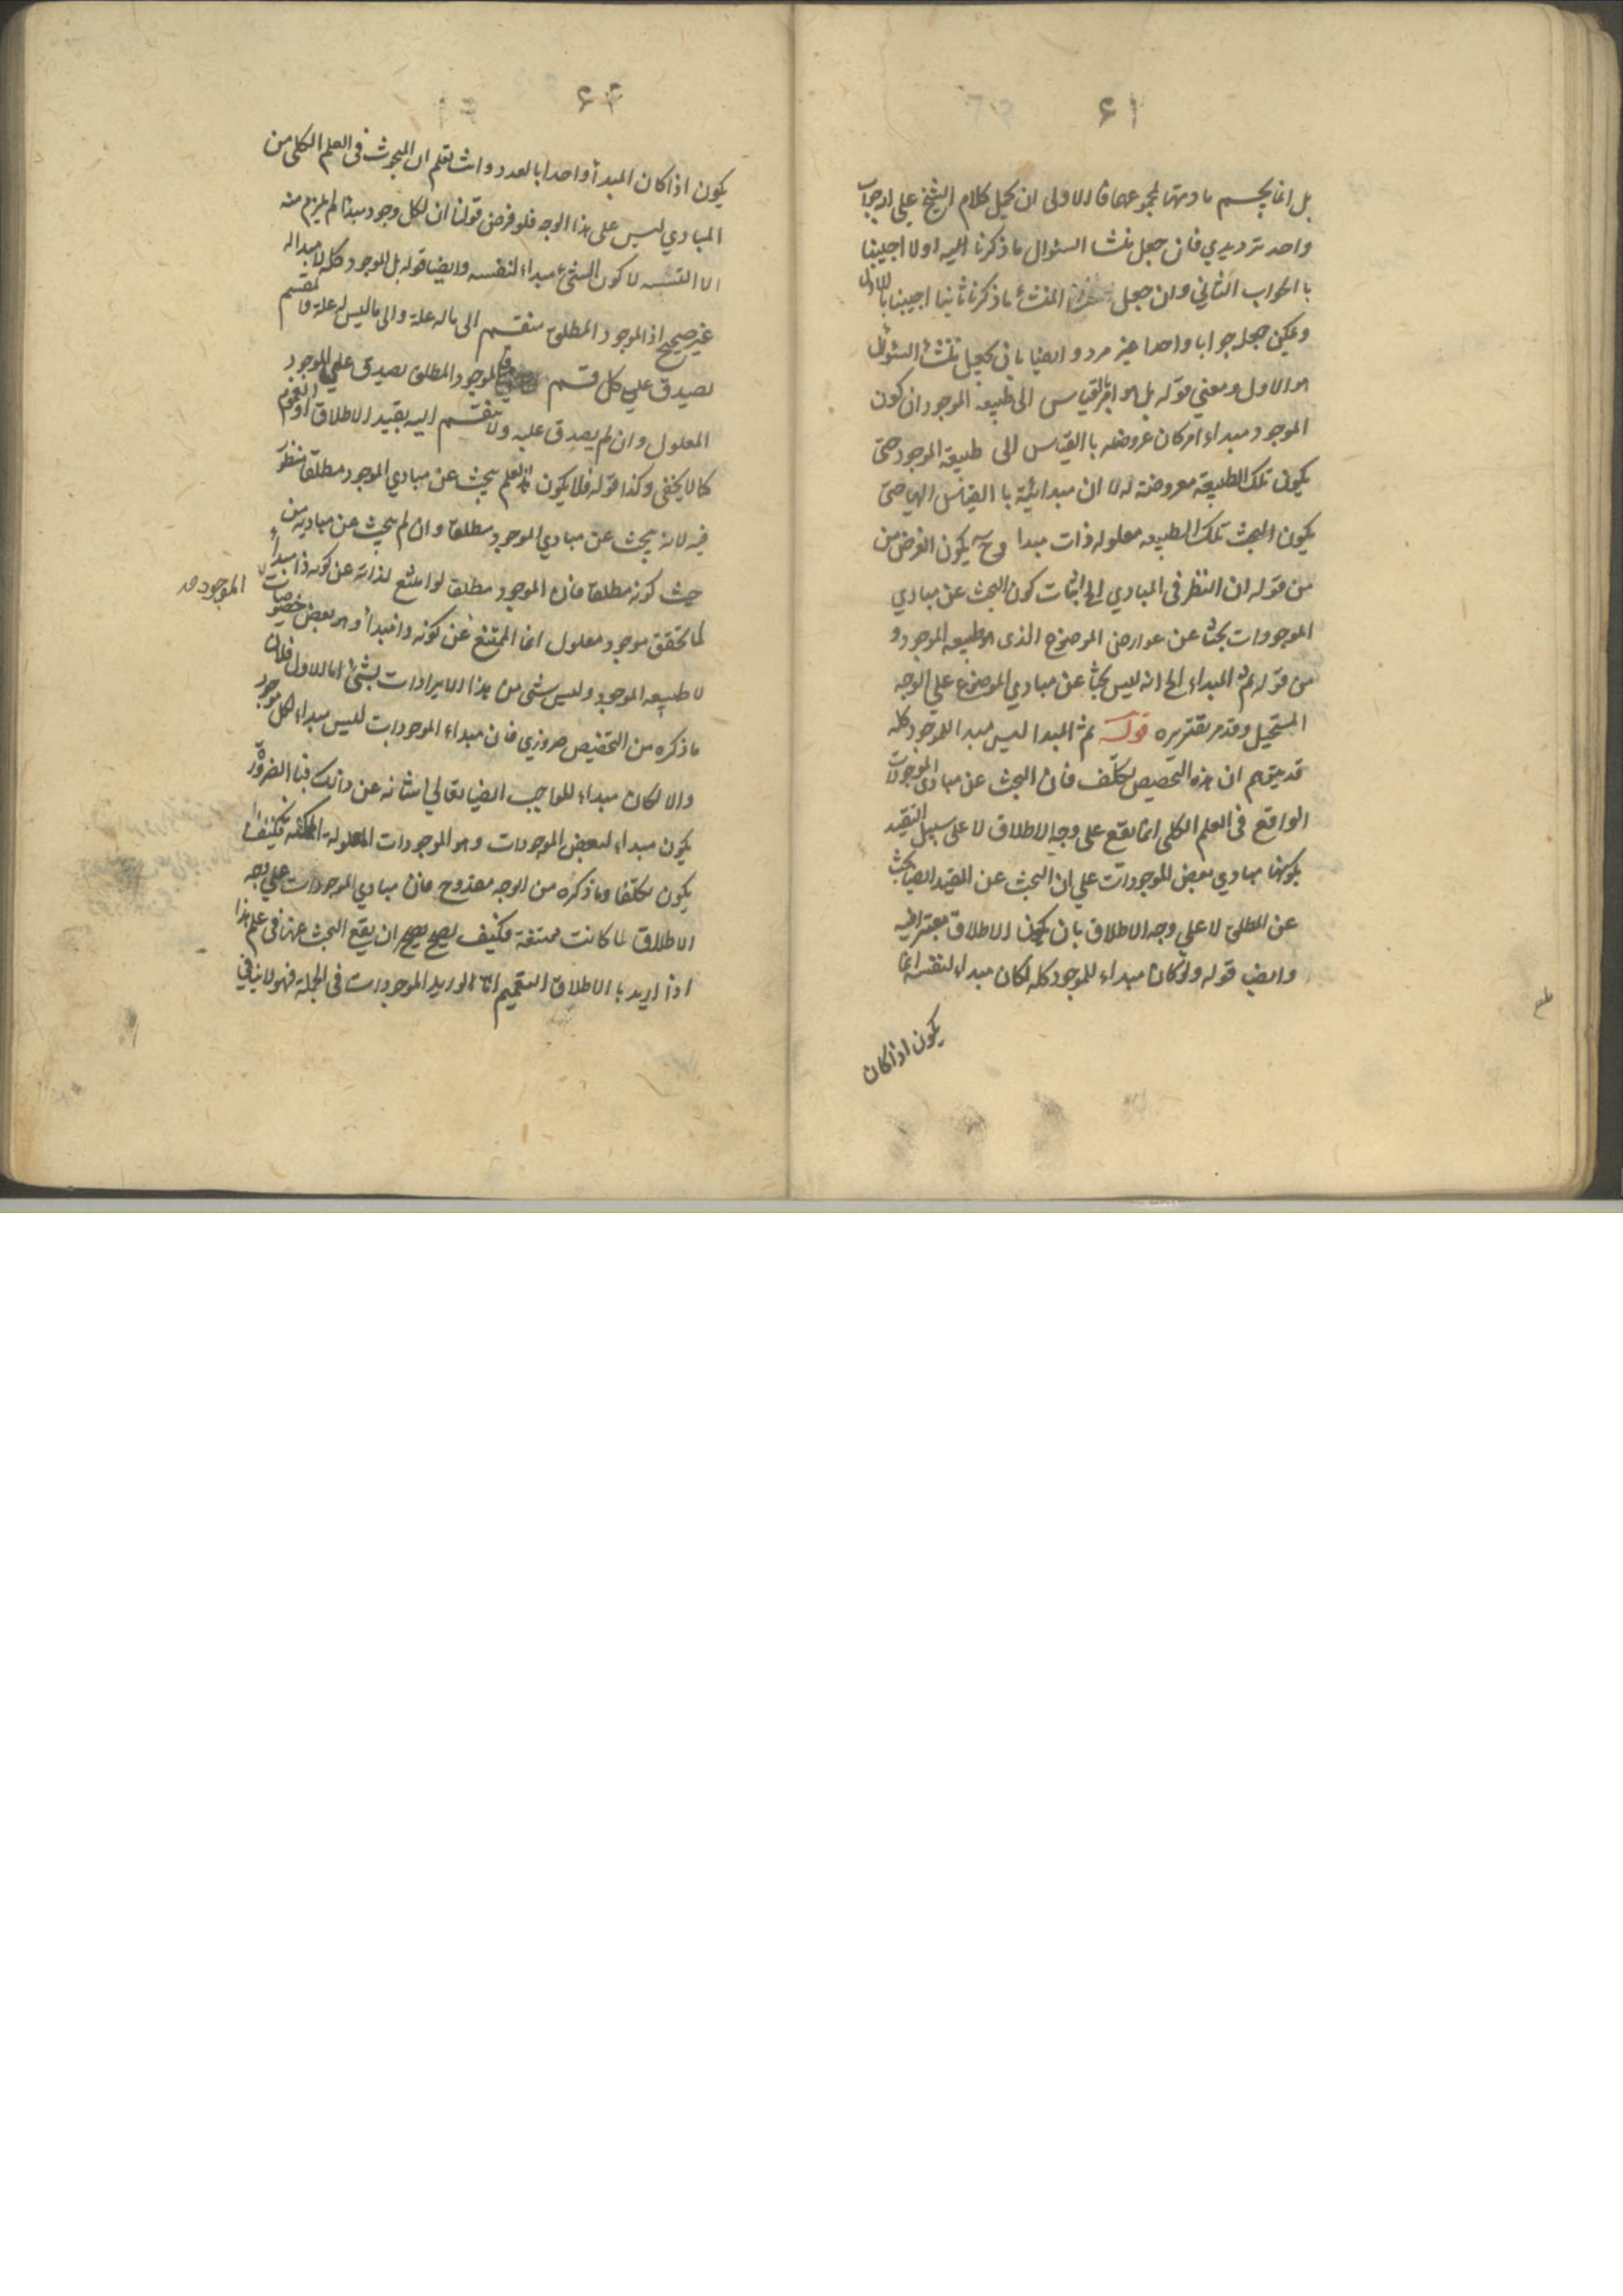 ٦١
بل انما يجسم مادتهما لمجموعهما فالاولى ان يحمل كلام الشيخ على الجواب
واحد ترديدي فان جعل منشا السئوال ما ذكرنا اليه اولا اجيبنا
با الجواب الثاني وان جعل المنشأ ما ذكرنا ثانيا اجيبنا بالاول
ويمكن جعله جوابا واحدا غير مردد ايضا بان يجعل منشأ السئوال
هو الاول ومعني قوله بل هو امر بالقياس الى طبيعه الموجود ان كون
الموجود مبداء امر كان عروضه با القياس الى طبيعة الموجود حتى
يكون تلك الطبيعة معروضة له لا ان مبدائية با القياس اليها حتى
يكون البحث تلك الطبيعه معلوله ذات مبدا وح يكون الغرض من
من قوله ان النظر في المبادي الى اثبات كون البحث عن مبادي
الموجودات بحثا عن عوارض الموضوع الذى هو طبيعه الموجود و
من قوله ثم المبداء الى انه ليس بحثا عن مبادي الموضوع على الوجه
المستحيل وقد مر تقريره قوله ثم المبدا ليس مبدا للموجود كله
قد يتوهم ان هذه التخصيص تكلف فان البحث عن مبادى الموجودات
الواقع فى العلم الكلى انما يقع على وجه الاطلاق لا على سبيل التقيد
بكونها مبادي بعض الموجودات على ان البحث عن المقيد ايضا بحث
عن المطلق لا على وجه الاطلاق بان يكون الاطلاق معتبرا فيه
وايض قوله ولو كان مبداء للموجود كله لكان مبداء لنفسه انما
يكون اذا كان
٦٢
يكون اذا كان المبدأ واحدا بالعدد وانت تعلم ان المبحوث فى العلم الكلى من
المبادي ليس على هذا الوجه فلو فرض قولنا ان لكل وجود مبدا لم يلزم منه
الا التسلسل لا كون الشئ مبداء لنفسه وايضا قوله بل الموجود كله لا مبدا له
غير صحيح اذ الموجود المطلق ينقسم الى ما له علة والى ما ليس له علة والمقسم
يصدق على كل قسم فالموجود المطلق يصدق على الموجود
المعلول وان لم يصدق عليه ولا ينقسم اليه بقيد الاطلاق او العموم
كما لا يخفى وكذا قوله فلا يكون هذا العلم يبحث عن مبادي الموجود مطلقا منظور
فيه لانه يبحث عن مبادي الموجود مطلقا وان لم يبحث عن مباديه من
حيث كونه مطلقا فان الموجود مطلقا لو امتنع لذاته عن كونه ذا مبدأ
لما تحقق موجود معلول انما الممتنع عن كونه ذا مبدأ وهو بعض خصوصيات الموجود
لا طبيعه الموجود وليس شى من هذا الايرادات بشئ اما الاول فلان
ما ذكره من التخصيص ضروري فان مبداء الموجودات ليس مبداء لكل موجود
والا لكان مبداء للواجب ايضا تعالي شانه عن ذلك فبا الضرورة
يكون مبداء لبعض الموجودات وهو الموجودات المعلولة الممكنه فكيف
يكون تكلفا وما ذكره من الوجه مقدوح فان مبادي الموجودات على وجه
الاطلاق لما كانت ممتنعة فكيف يصح يصح ان يقع البحث عنها فى علم هذا
اذا اريد با الاطلاق التعميم اما لو اريد الموجودات فى الجملة فهو لا ينافي